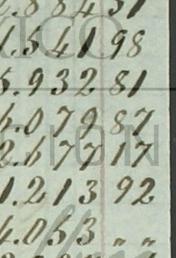 .884 31
1.541 98
5.932 81
6.079 87
2.677 17
1.213 92
4.053 „ „